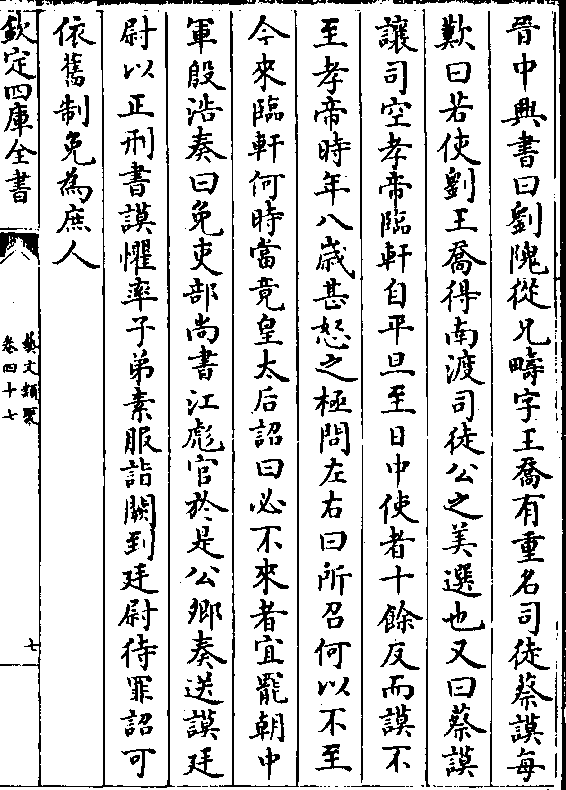 晉中興書曰劉隗從兄疇字王喬有重名司徒蔡謨每
歎曰若使劉王喬得南渡司徒公之美選也又曰蔡謨
讓司空孝帝臨軒自平旦至日中使者十餘反而謨不
至孝帝時年八歲甚怒之極問左右曰所召何以不至
今來臨軒何時當竟皇太后詔曰必不來者宜罷朝中
軍殷浩奏曰免吏部尚書江彪官於是公卿奏送謨廷
尉以正刑書謨懼率子弟素服詣闕到廷尉待罪詔可
依舊制免為庶人
欽定四庫全書
藝文類聚
卷四十七
七